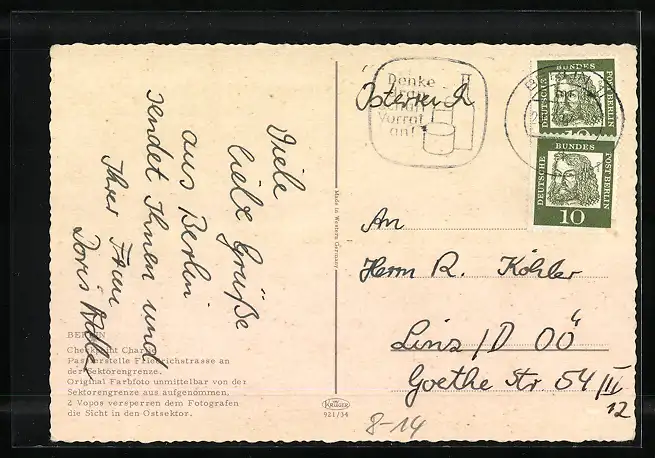 Viele
liebe Grüße
aus Berlin
sendet Ihnen und
Ihrer Frau
Doris
BERLIN
Checkpoint Charlie
Passierstelle Friedrichstrasse an
der Sektorengrenze.
Original Farbfoto unmittelbar von der
Sektorengrenze aus aufgenommen.
2 Vopos versperren dem Fotografen
die Sicht in den Ostsektor.
Made in Western Germany
KRÜGER
921/34
Denke
dran
schaff
Vorrat
an!
Österreich
BERLIN
DEUTSCHE BUNDES POST BERLIN
10
DEUTSCHE BUNDES POST BERLIN
10
An
Herrn R. Köhler
Linz /D OÖ
Goethe Str. 54/II
12
8-14